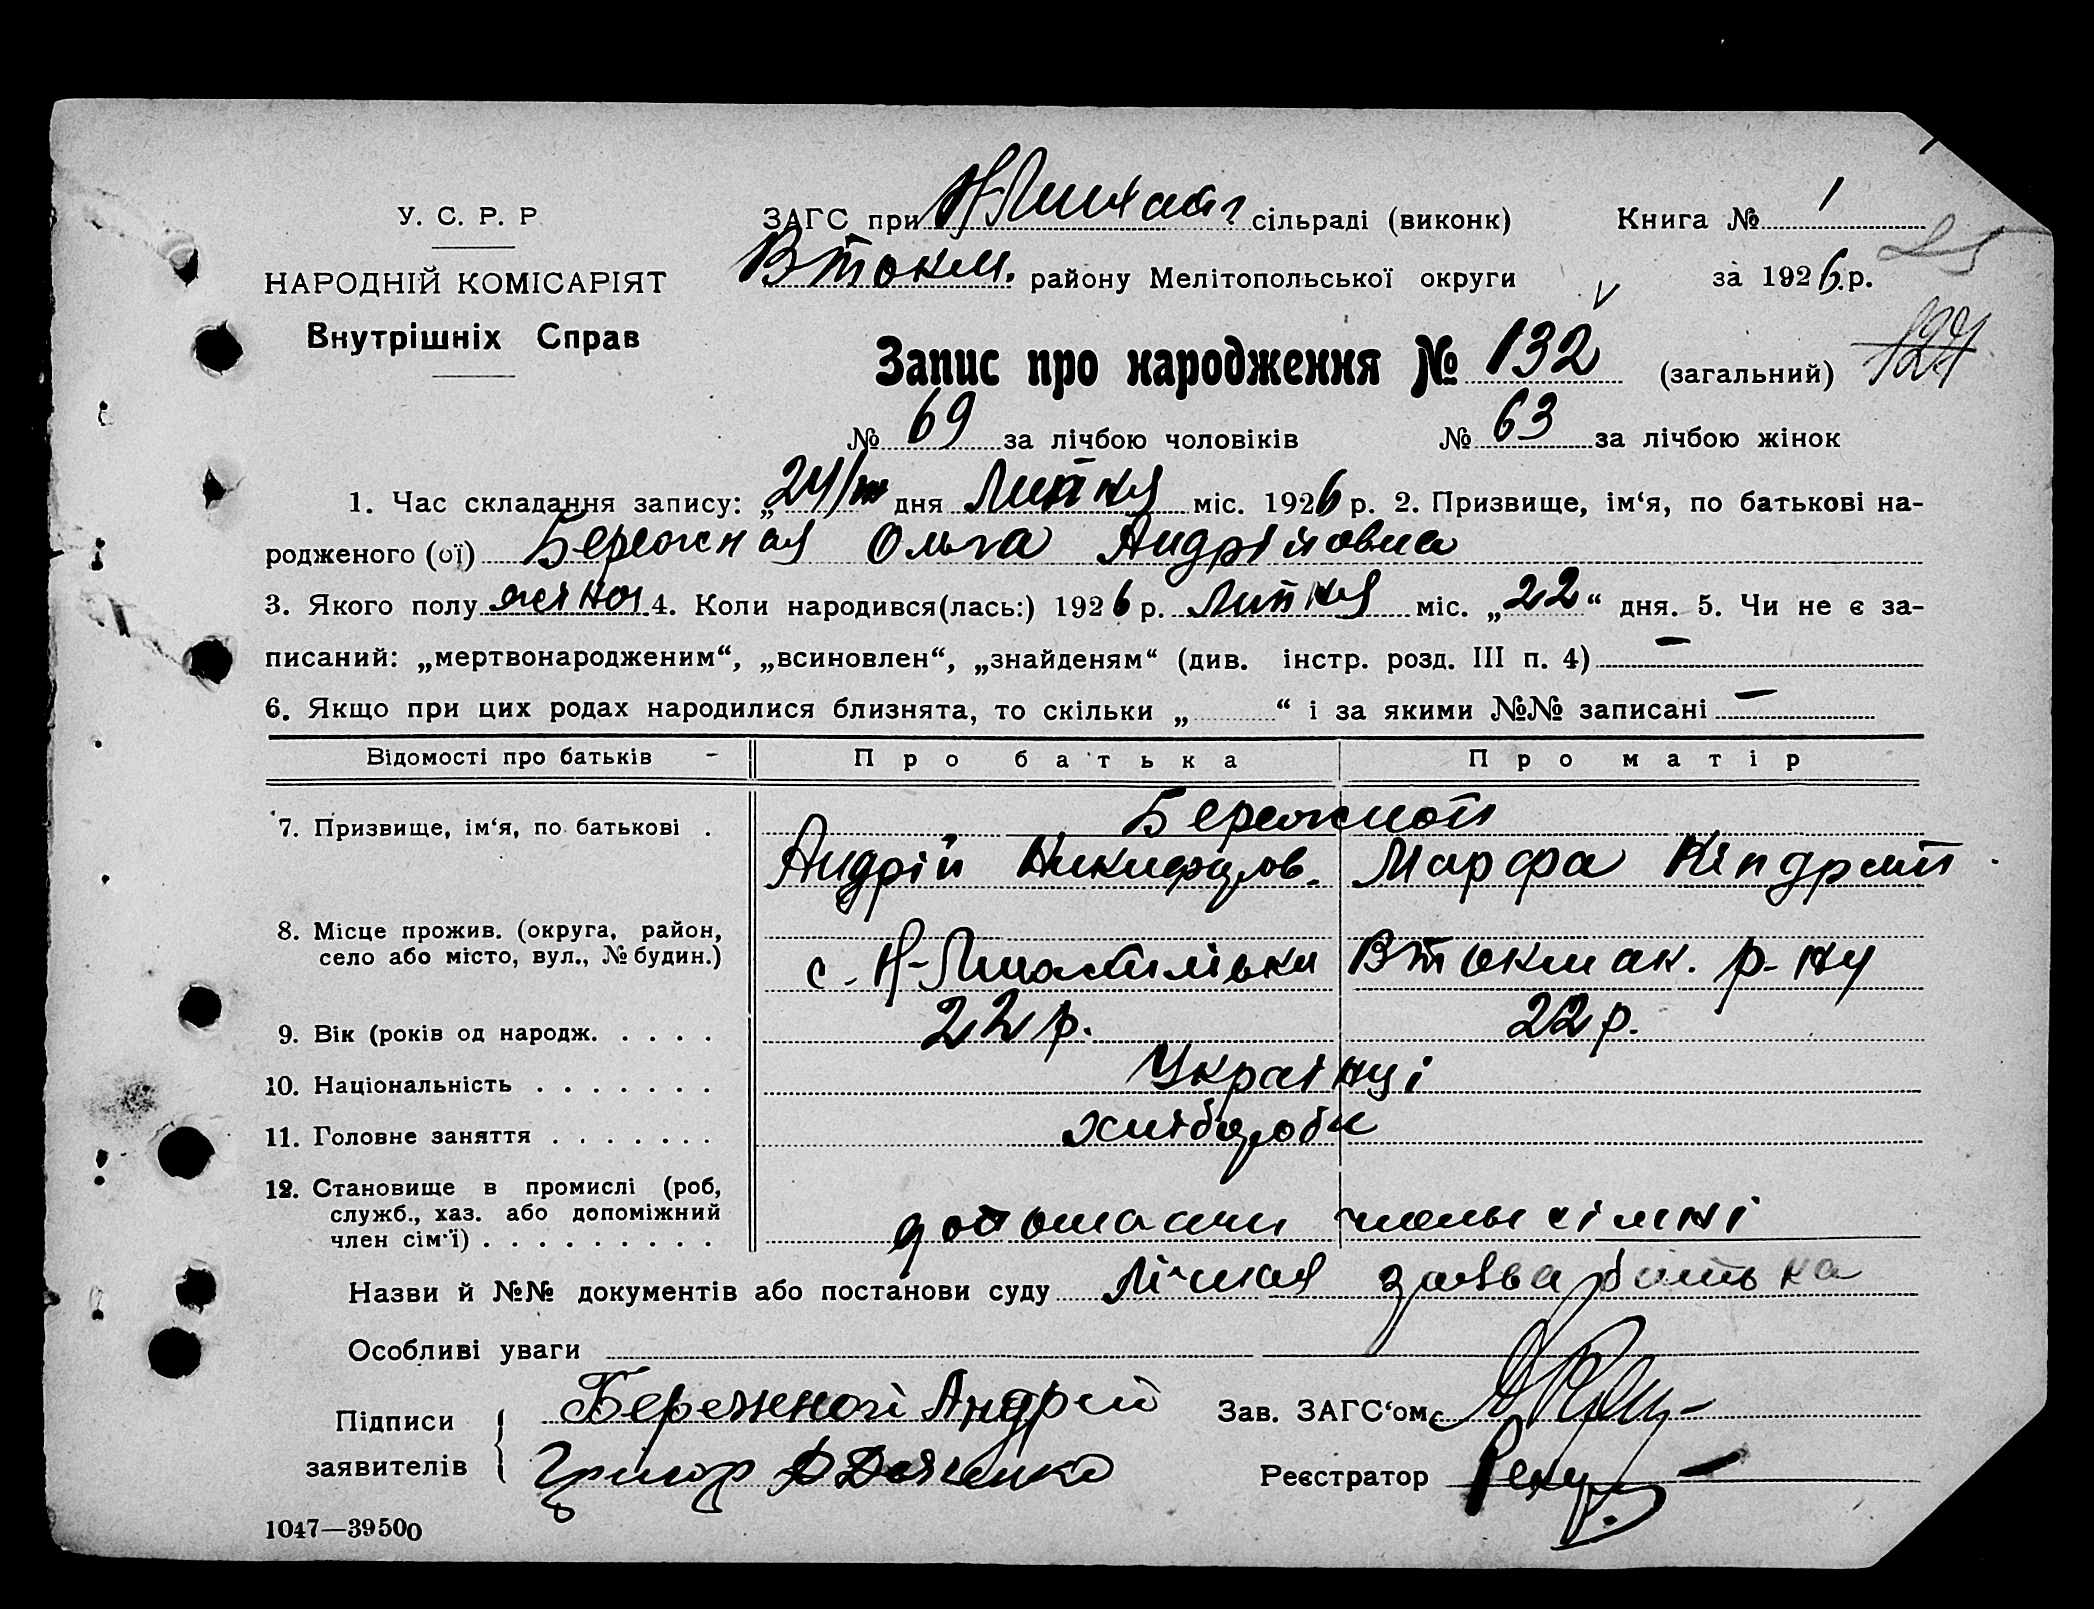 У. С. Р. Р
НАРОДНІЙ КОМІСАРІЯТ
Внутрішніх Справ
ЗАГС при сільраді (виконк) Книга № 1
ВТокм. району Мелітопольської округи за 1926.р.
Запис про народження № 132 (загальний) 127
№ 69 за лічбою чоловіків № 63 за лічбою жінок
1. Час складання запису: „24 дня Липня міс. 1926 р. 2. Призвище, ім‘я, по батькові на-
родженого (ої) Бережная Ольга Андріівна
3. Якого полу жіноч 4. Коли народився(лась:) 1926 р. Липня міс. „22“ дня. 5. Чи не є за-
писаний: „мертвонародженим“, „всиновлен“, „знайденям“ (див. інстр. розд. III п. 4) –
6. Якщо при цих родах народилися близнята, то скільки „ “ і за якими №№ записані –
Відомості про батьків – Про батька Про матір
7. Призвище, ім‘я, по батькові . Бережной
Андрій Никифоров. Марфа Кіндрат
8. Місце прожив. (округа, район,
село або місто, вул., № будин.) с. ВТокмак. р-ну
9. Вік (років од народж. . . . . 22 р. 22 р.
10. Національність . . . . . . . Українці
11. Головне заняття . . . . . . . хлібороби
12. Становище в промислі (роб,
служб., хаз. або допоміжний
член сім‘ї) . . . . . . . . . члены сімні
Назви й №№ документів або постанови суду Лічная заява батька
Особливі уваги
Підписи
заявителів
Бережной Андрей
Григор Дяченко
Зав. ЗАГС‘ом
Реєстратор
1047—39500